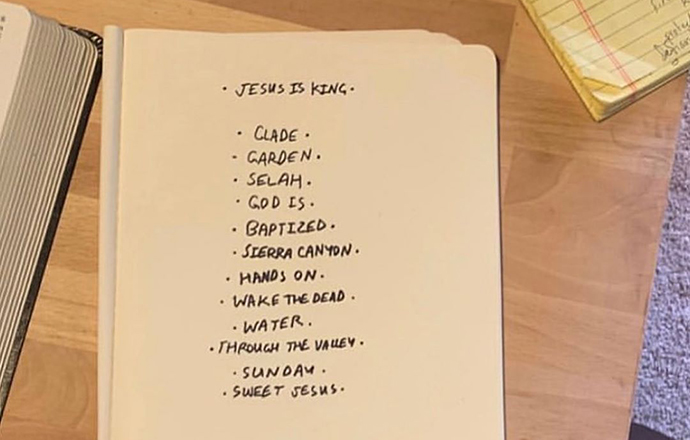 · JESUS IS KING ·
· CLADE ·
· GARDEN ·
· SELAH ·
· GOD IS ·
· BAPTIZED ·
· SIERRA CANYON ·
· HANDS ON ·
· WAKE THE DEAD ·
· WATER ·
· THROUGH THE VALLEY ·
· SUNDAY ·
· SWEET JESUS ·